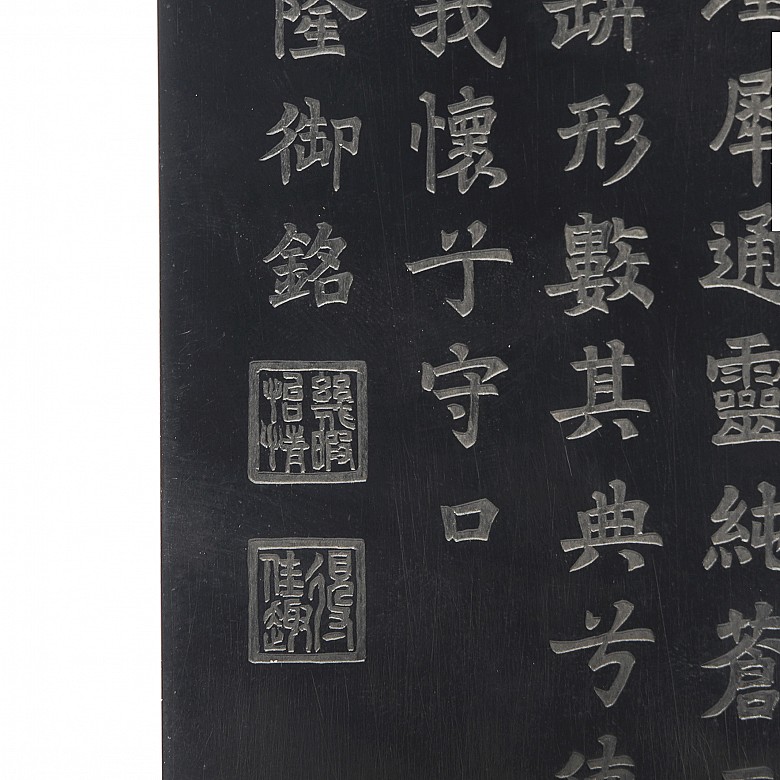 犀通靈純蒼
形數其典兮
我懷兮守口
隆御銘
幾暇怡情
得佳趣